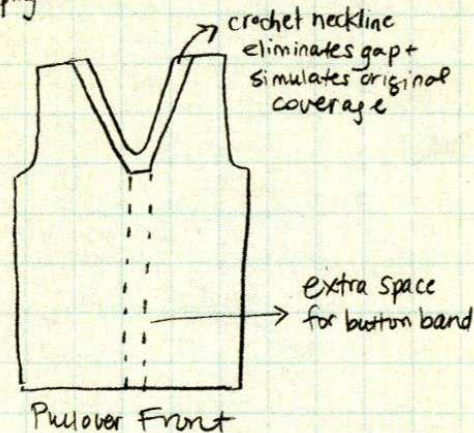 crochet neckline
eliminates gap +
simulates original
coverage
extra space
for button band
Pullover Front